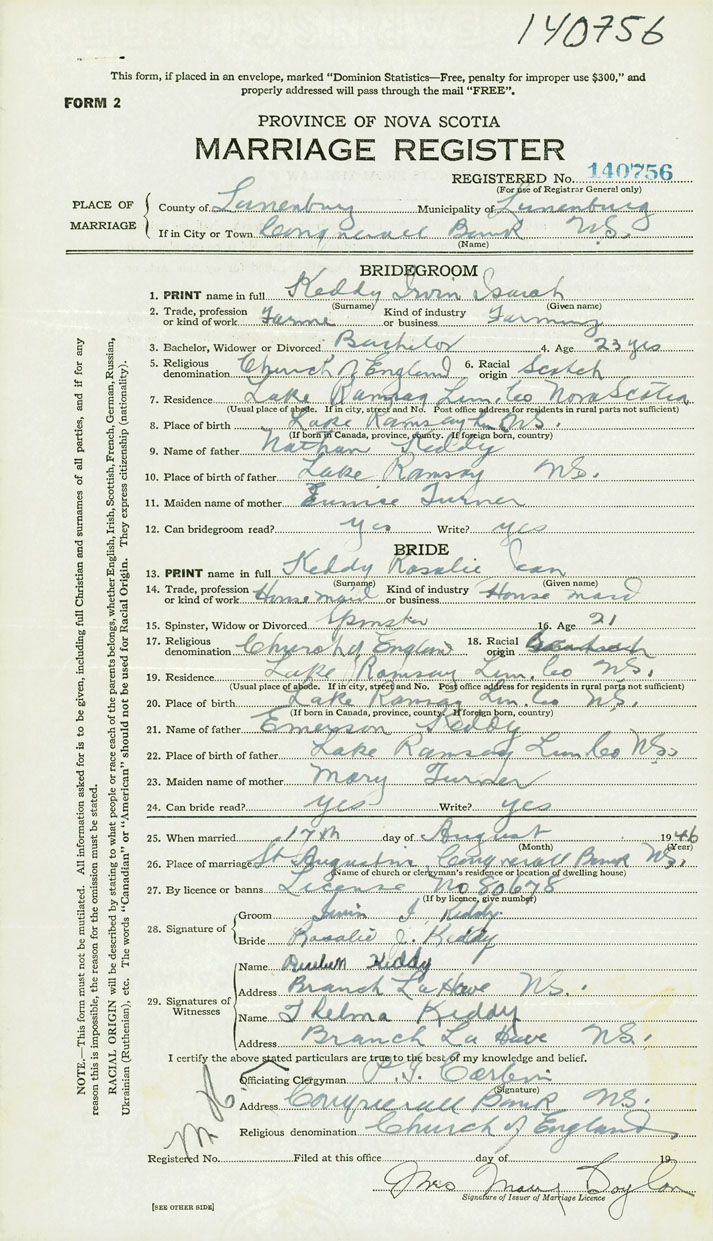 140756
This form, if placed in an envelope, marked "Dominion Statistics—Free, penalty for improper use $300," and
properly addressed will pass through the mail "FREE".
FORM 2
PROVINCE OF NOVA SCOTIA
MARRIAGE REGISTER
REGISTERED No. 140756
(For use of Registrar General only)
PLACE OF MARRIAGE
County of Lunenburg Municipality of Lunenburg
If in City or Town Conquerall Bank N.S.
(Name)
BRIDEGROOM
1. PRINT name in full Keddy Irvin Isaiah
(Surname) (Given name)
2. Trade, profession or kind of work Farmer Kind of industry or business Farming
3. Bachelor, Widower or Divorced Bachelor 4. Age 23 yrs
5. Religious denomination Church of England 6. Racial origin Scotch
7. Residence Lake Ramsay Lun. Co Nova Scotia
(Usual place of abode. If in city, street and No. Post office address for residents in rural parts not sufficient)
8. Place of birth Lake Ramsay N.S.
(If born in Canada, province, county. If foreign born, country)
9. Name of father Nathan Keddy
10. Place of birth of father Lake Ramsay N.S.
11. Maiden name of mother Eunice Turner
12. Can bridegroom read? yes Write? yes
BRIDE
13. PRINT name in full Keddy Rosalie Jean
(Surname) (Given name)
14. Trade, profession or kind of work House maid Kind of industry or business House maid
15. Spinster, Widow or Divorced Spinster 16. Age 21
17. Religious denomination Church of England 18. Racial origin
19. Residence Lake Ramsay Lun. Co N.S.
(Usual place of abode. If in city, street and No. Post office address for residents in rural parts not sufficient)
20. Place of birth Lake Ramsay Lun. Co N.S.
(If born in Canada, province, county. If foreign born, country)
21. Name of father Emerson Keddy
22. Place of birth of father Lake Ramsay Lun. Co N.S.
23. Maiden name of mother Mary Turner
24. Can bride read? yes Write? yes
25. When married 17th day of August 1946
(Month) (Year)
26. Place of marriage St Augustine Conquerall Bank N.S.
(Name of church or clergyman's residence or location of dwelling house)
27. By licence or banns License No 80678
(If by licence, give number)
28. Signature of
Groom Irvin I. Keddy
Bride Rosalie J. Keddy
29. Signatures of Witnesses
Name Keddy
Address Branch La Have N.S.
Name Thelma Keddy
Address Branch La Have N.S.
I certify the above stated particulars are true to the best of my knowledge and belief.
Officiating Clergyman
(Signature)
Address Conquerall Bank N.S.
Religious denomination Church of England
Registered No. Filed at this office day of 19
Mrs Mary
Signature of Issuer of Marriage Licence
[SEE OTHER SIDE]
NOTE.—This form must not be mutilated. All information asked for is to be given, including full Christian and surnames of all parties, and if for any
reason this is impossible, the reason for the omission must be stated.
RACIAL ORIGIN will be described by stating to what people or race each of the parents belongs, whether English, Irish, Scottish, French, German, Russian,
Ukrainian (Ruthenian), etc. The words "Canadian" or "American" should not be used for Racial Origin. They express citizenship (nationality).